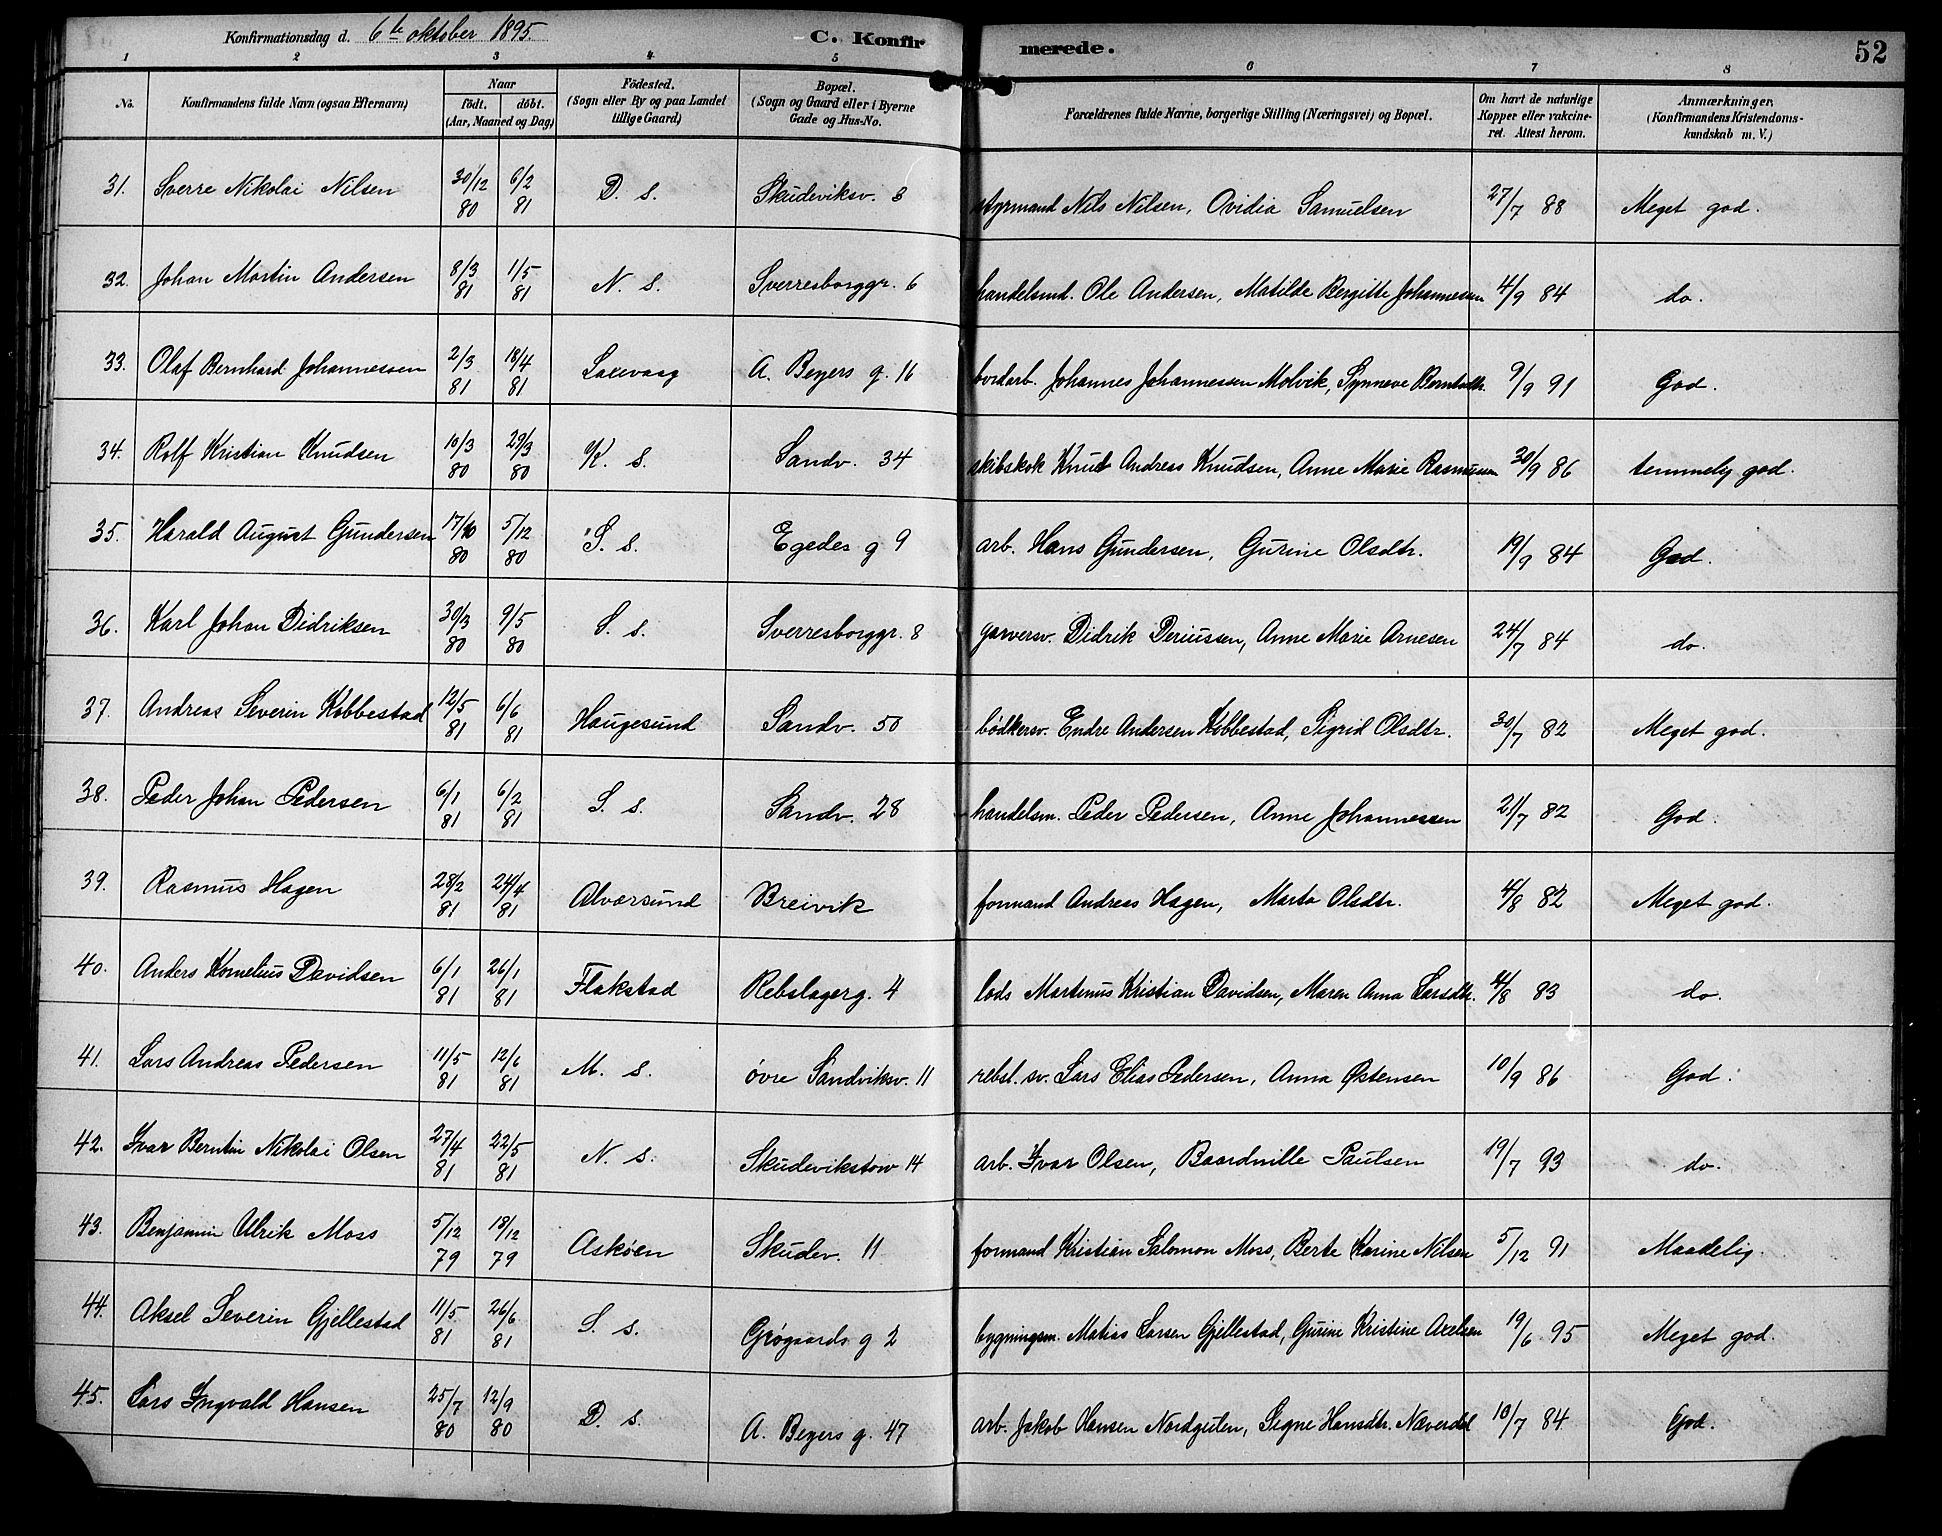 Konfirmationsdag d. 6te oktober 1895.
C. Konfirmerede.
52
1 2 3 4 5 6 7 8
No. Konfirmandens fulde Navn (ogsaa Efternavn) Naar født. døbt. (Aar, Maaned og Dag) Fødested. (Sogn eller By og paa Landet tillige Gaard) Bopæl. (Sogn og Gaard eller i Byerne Gade og Hus-No. Forældrenes fulde Navne, borgerlige Stilling (Næringsvei) og Bopæl. Om havt de naturlige Kopper eller vakcineret. Attest herom. Anmærkninger. (Konfirmandens Kristendomskundskab m. V.)
31. Sverre Nikolai Nilsen 30/12 80 6/2 81 D. s. Skudeviksv. 3 styrmand Nils Nilsen, Ovidia Samuelsen 27/7 88 Meget god.
32. Johan Martin Andersen 8/3 81 1/5 81 N. s. Sverresborggr. 6 handelsmd. Ole Andersen, Matilde Bergitte Johannesen 4/9 84 do.
33. Olaf Bernhard Johannessen 2/3 81 18/4 81 Laxevaag A. Beyers g. 16 bordarb. Johannes Johannessen Molvik, Synneve Berntsdtr. 9/9 91 God.
34. Rolf Kristian Knudsen 10/3 80 29/3 80 K. s. Sandv. 34 skibskok Knut Andreas Knudsen, Anne Marie Rasmussen 30/9 86 temmelig god.
35. Harald August Gundersen 17/10 80 5/12 80 S. s. Egedes g 9 arb. Hans Gundersen, Gurine Olsdtr. 19/9 84 God.
36. Karl Johan Didriksen 30/3 80 9/5 80 S. s. Sverresborggr. 8 garversv. Didrik Deriussen, Anne Marie Arnesen 24/7 84 do.
37. Andreas Severin Købbestad 12/5 81 6/6 81 Haugesund Sandv. 50 bødkersv. Endre Andersen Købbestad, Sigrid Olsdtr. 30/7 82 Meget god.
38. Peder Johan Pedersen 6/1 81 6/2 81 S. s. Sandv. 28 handelsm. Peder Pedersen, Anne Johannessen 21/7 82 God.
39. Rasmus Hagen 28/2 81 24/4 81 Alversund Breivik formand Andreas Hagen, Marta Olsdtr. 4/8 82 Meget god.
40. Anders Kornelius Davidsen 6/1 81 26/1 81 Flakstad Rebslagerg. 4 lods Martinus Kristian Davidsen, Maren Anna Larsdtr. 4/8 83 do.
41. Lars Andreas Pedersen 11/5 81 12/6 81 M. s. øvre Sandviksv. 11 rebsl. sv. Lars Elias Pedersen, Anna Østensen 10/9 86 God.
42. Ivar Berntin Nikolai Olsen 27/4 81 22/5 81 N. s. Skudevikstorv 14 arb. Ivar Olsen, Baardnille Paulsen 19/7 93 do.
43. Benjamin Ulrik Moss 5/12 79 18/12 79 Askøen Skudev. 11 formand Kristian Salomon Moss, Berte Karine Nilsen 5/12 91 Maadelig.
44. Aksel Severin Gjellestad 11/5 81 26/6 81 S. s. Grøgaards g 2 bygningsm. Matias Larsen Gjellestad, Gurine Kristine Axelsen 19/6 95 Meget god.
45. Lars Ingvald Hansen 25/7 80 12/9 80 D. s. A. Beyers g. 47 arb. Jakob Hansen Nordgulen, Signe Hansdtr. Næverdal 10/7 84 God.